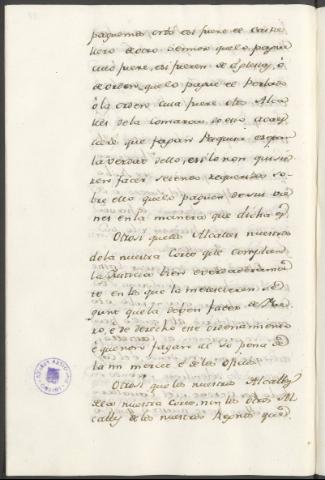 paguemos, otº esi fuere el Castie
llero de otro Sennor que lo pague
cuio fuere, esi fueren de Eglesias, ó
de orden, que lo pague el Perlado
ó la orden, cuia fuere elos Alca
lles dela comarca, do esto acaes
ciere que fagan Pesquisa esepan
la verdat dello, esi lo non quisie
ren facer seiendo requeridos so
bre ello que lo paguen de sus bie
nes en la manera que dicha es.
Otrosi que los Alcalles nuestros
dela nuestra Corte que cumplan
la Justicia bien e verdaderamen
te en los que la merescieren se
gunt que la deben facer de Fue
ro, e de derecho este ordenamiento
é que non fagan al so pena de
la mi mercet é de los oficios.
Otrosi que los nuestros Alcalles
dela nuestra Corte, nin los otros Al
calles de los nuestros Regnos quando